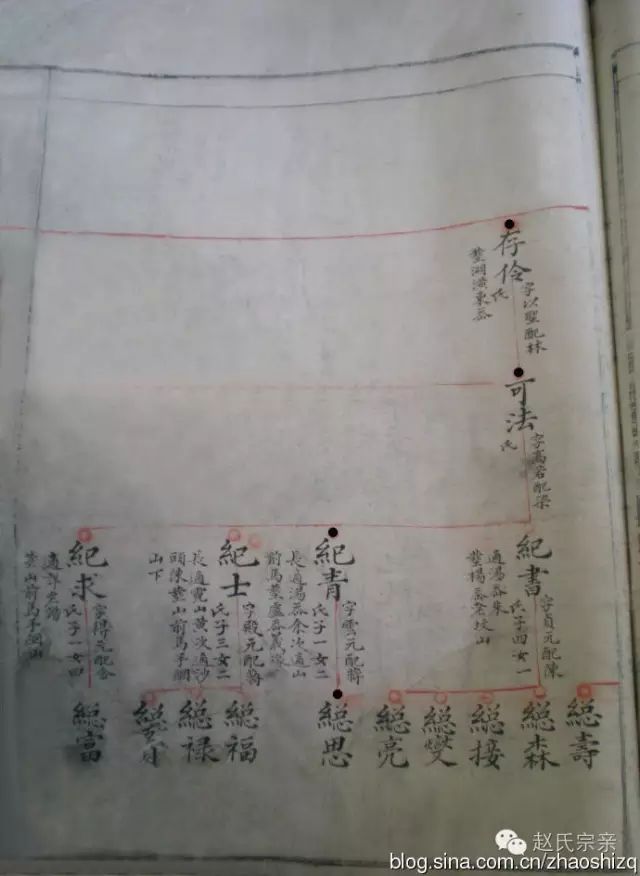 存伶
字以聖配林
氏
葬湖潢東岙
可法
字高岩配梁
氏
紀書
字貞元配陳
氏子四女一
適湯岙朱
葬楊岙
紀青
字雲元配蔣
氏子一女二
長適湯岙余次適山
前馬葬盧岙
紀士
字殿元配蔣
氏子三女二
長適霓山黃次適沙
頭陳葬山前馬
山下
紀求
字得元配
氏子一女四
葬山前馬
總壽
總森
總接
總燮
總亮
總思
總福
總禄
總富
赵氏宗亲
blog.sina.com.cn/zhaoshizq